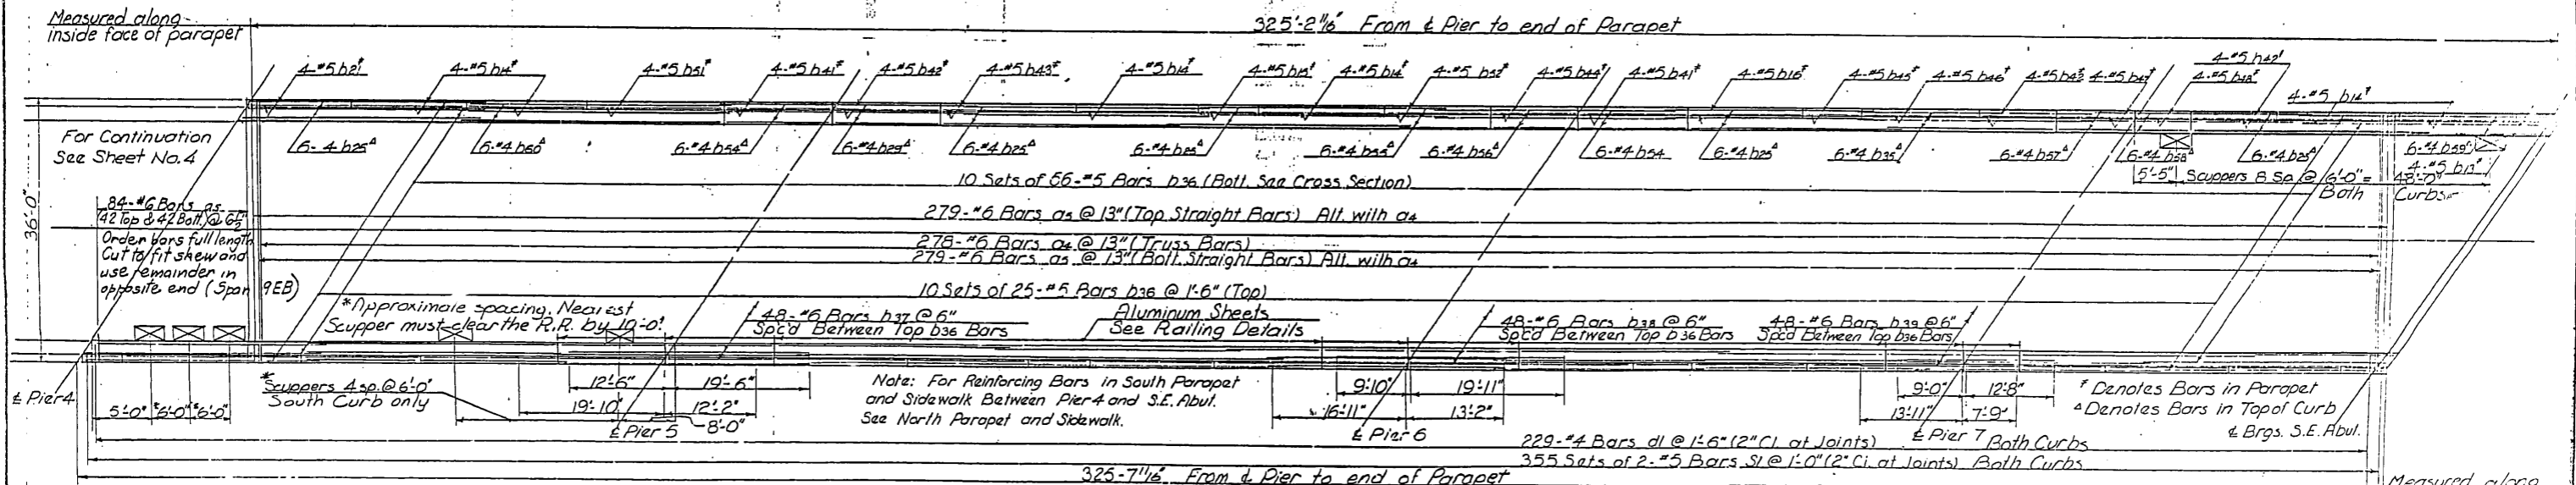 Measured along
inside face of parapet
325'-2 11/16" From ℄ Pier to end of Parapet
4-#5 b21‡
4-#5 b14‡
4-#5 b51‡
4-#5 b41‡
4-#5 b42‡
4-#5 b43‡
4-#5 b14‡
4-#5 b15‡
4-#5 b14‡
4-#5 b52‡
4-#5 b44‡
4-#5 b41‡
4-#5 b16‡
4-#5 b45‡
4-#5 b46‡
4-#5 b47‡
4-#5 b48‡
4-#5 b14‡
For Continuation
See Sheet No. 4
6-#4 b60Δ
6-#4 b54Δ
6-#4 b25Δ
6-#4 b25Δ
6-#4 b56Δ
6-#4 b54
6-#4 b25Δ
6-#4 b35Δ
6-#4 b57Δ
6-#4 b58Δ
6-#4 b25Δ
4-#5 b13‡
36'-0"
10 Sets of 66-#5 Bars b36 (Bott. See Cross Section)
5'-5"
Scuppers 8 Sp. @ 6'-0" = 48'-0"
Both Curbs
84-#6 Bars a5
42 Top & 42 Bott. @ 6½"
Order bars full length
Cut to fit skew and
use remainder in
opposite end (Span 9EB)
279-#6 Bars a5 @ 13" (Top Straight Bars) Alt. with a4
278-#6 Bars a4 @ 13" (Truss Bars)
279-#6 Bars a5 @ 13" (Bott. Straight Bars) Alt. with a4
10 Sets of 25-#5 Bars b36 @ 1'-6" (Top)
*Approximate spacing, Nearest
Scupper must clear the R.R. by 10'-0"
48-#6 Bars b37 @ 6"
Spc'd Between Top b36 Bars
Aluminum Sheets
See Railing Details
48-#6 Bars b38 @ 6"
Spc'd Between Top b36 Bars
48-#6 Bars b39 @ 6"
Spc'd Between Top b36 Bars
℄ Pier 4
5'-0" *6'-0" *6'-0"
*Scuppers 4 sp. @ 6'-0"
South Curb only
12'-6"
19'-6"
19'-10"
12'-2"
8'-0"
℄ Pier 5
Note: For Reinforcing Bars in South Parapet
and Sidewalk Between Pier 4 and S.E. Abut.
See North Parapet and Sidewalk.
9'-10"
19'-11"
16'-11"
13'-2"
℄ Pier 6
9'-0"
12'-8"
13'-11"
7'-9"
℄ Pier 7
‡ Denotes Bars in Parapet
Δ Denotes Bars in Top of Curb
℄ Brgs. S.E. Abut.
229-#4 Bars d1 @ 1'-6" (2" Cl. at Joints) Both Curbs
355 Sets of 2-#5 Bars S1 @ 1'-0" (2" Cl. at Joints) Both Curbs
325'-7 11/16" From ℄ Pier to end of Parapet
Measured along